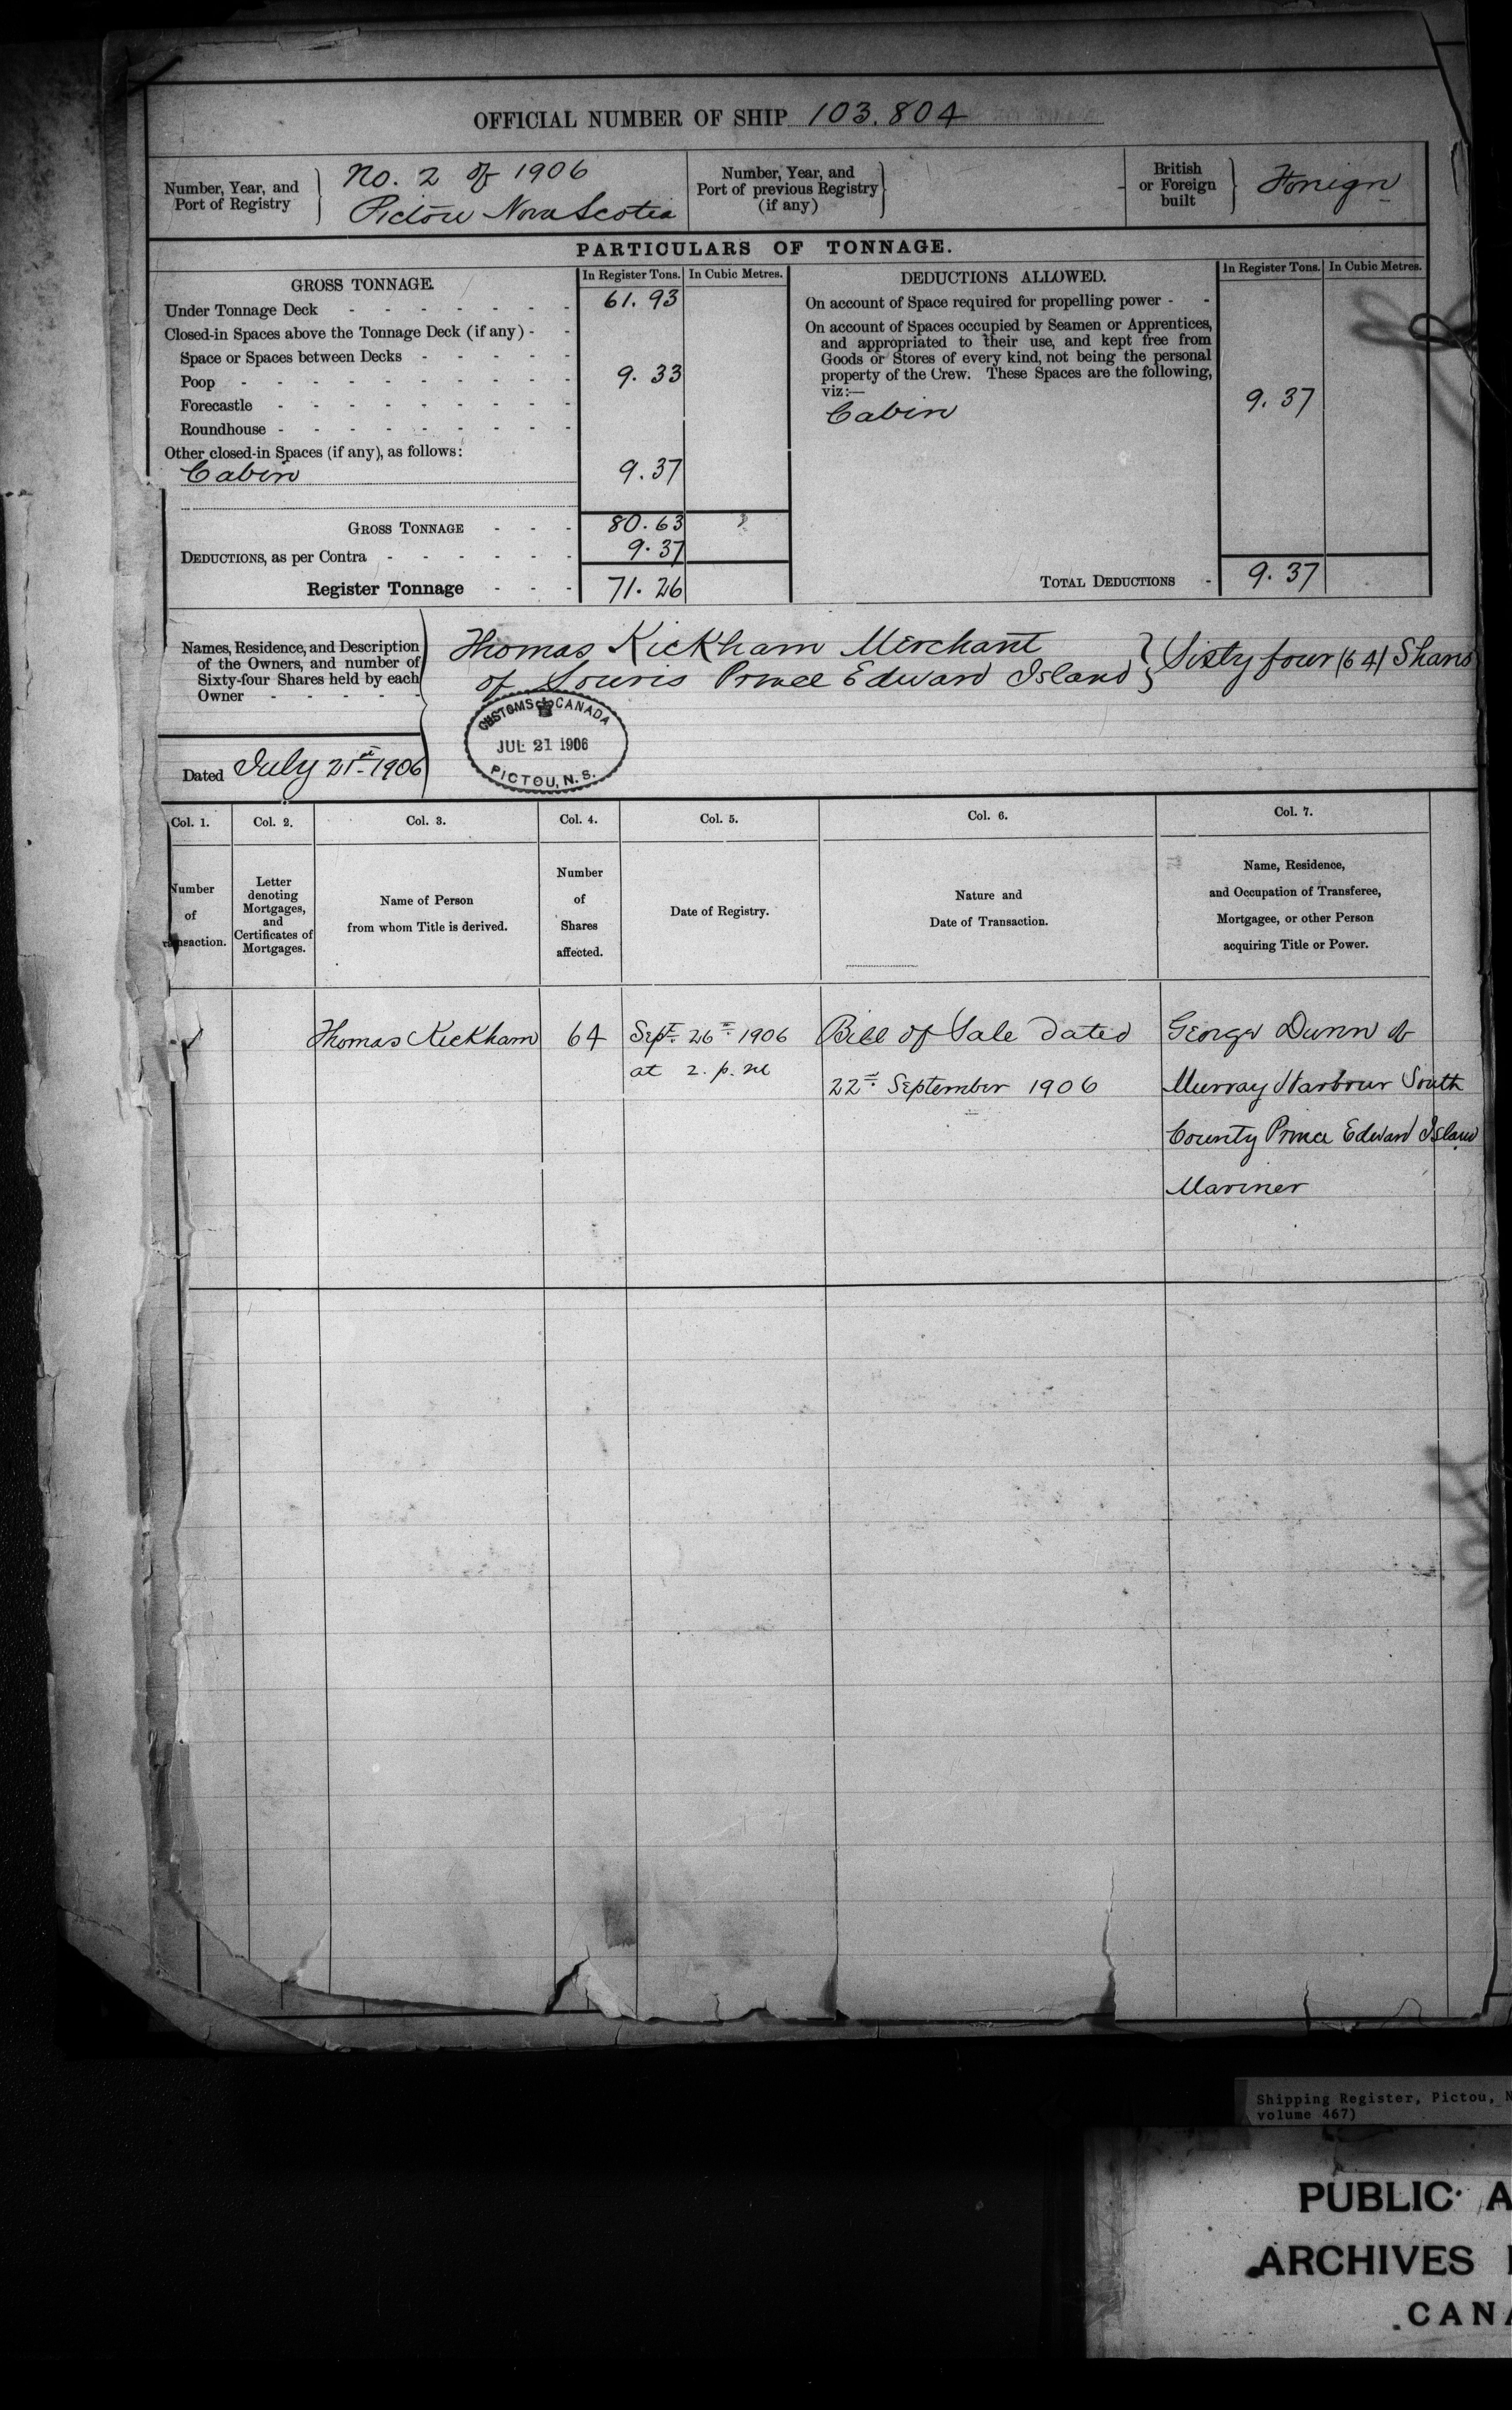 OFFICIAL NUMBER OF SHIP 103.804
Number, Year, and
Port of Registry
No. 2 of 1906
Pictou Nova Scotia
Number, Year, and
Port of previous Registry
(if any)
British
or Foreign
built
Foreign
PARTICULARS OF TONNAGE.
GROSS TONNAGE.
In Register Tons.
In Cubic Metres.
Under Tonnage Deck - - - - - - - 61.93
Closed-in Spaces above the Tonnage Deck (if any) - -
Space or Spaces between Decks - - - - -
Poop - - - - - - - - - - 9.33
Forecastle - - - - - - - -
Roundhouse - - - - - - - - -
Other closed-in Spaces (if any), as follows:
Cabin 9.37
GROSS TONNAGE - - - 80.63
DEDUCTIONS, as per Contra - - - - - - 9.37
Register Tonnage - - - 71.26
DEDUCTIONS ALLOWED.
In Register Tons.
In Cubic Metres.
On account of Space required for propelling power - -
On account of Spaces occupied by Seamen or Apprentices,
and appropriated to their use, and kept free from
Goods or Stores of every kind, not being the personal
property of the Crew. These Spaces are the following,
viz:—
Cabin 9.37
TOTAL DEDUCTIONS - 9.37
Names, Residence, and Description
of the Owners, and number of
Sixty-four Shares held by each
Owner - - - - -
Thomas Kickham Merchant
of Souris Prince Edward Island
Sixty four (64) Shares
CUSTOMS CANADA
JUL 21 1906
PICTOU, N. S.
Dated July 21st 1906
Col. 1.
Col. 2.
Col. 3.
Col. 4.
Col. 5.
Col. 6.
Col. 7.
Number
of
Transaction.
Letter
denoting
Mortgages,
and
Certificates of
Mortgages.
Name of Person
from whom Title is derived.
Number
of
Shares
affected.
Date of Registry.
Nature and
Date of Transaction.
Name, Residence,
and Occupation of Transferee,
Mortgagee, or other Person
acquiring Title or Power.
Thomas Kickham
64
Sept. 26th 1906
at 2. p. m
Bill of Sale dated
22nd September 1906
George Dunn of
Murray Harbour South
County Prince Edward Island
Mariner
Shipping Register, Pictou, N
volume 467)
PUBLIC A
ARCHIVES
CANA